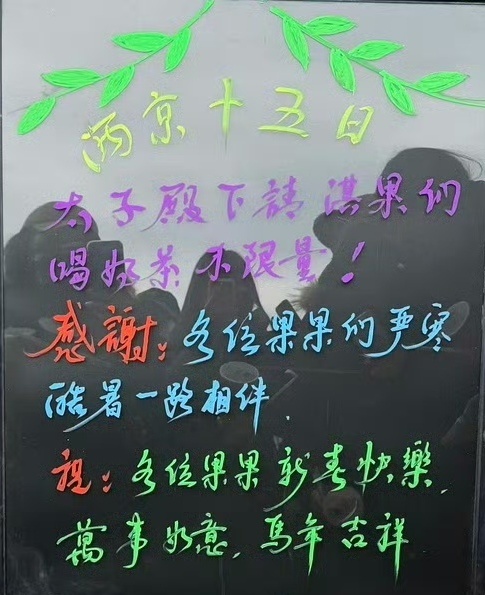 两京十五日
太子殿下請淇果们
喝奶茶不限量！
感謝：各位果果们严寒
酷暑一路相伴.
祝：各位果果新春快樂.
萬事如意.馬年吉祥